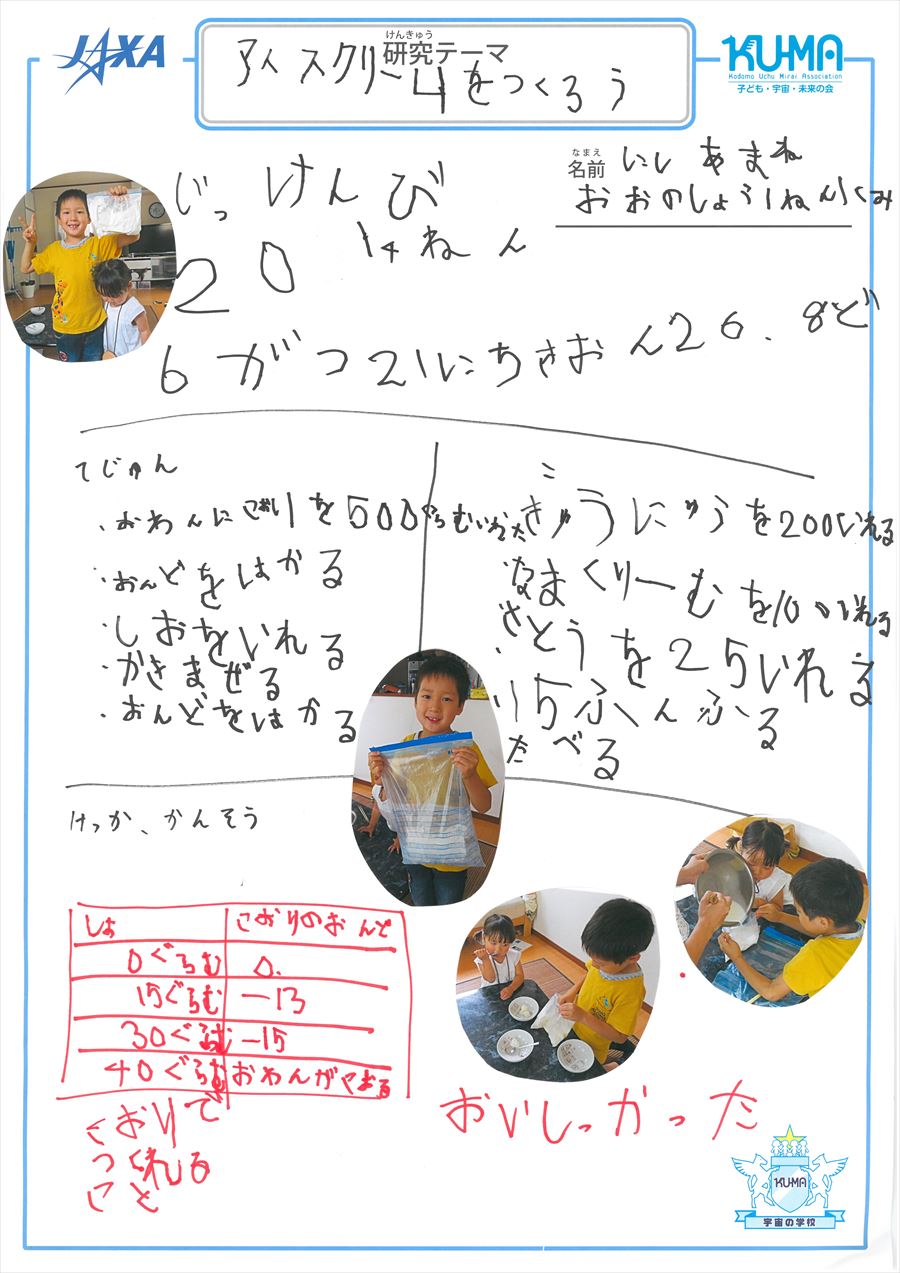 JAXA
けんきゅう
研究テーマ
アイスクリームをつくろう
KU-MA
Kodomo Uchu Mirai Association
子ども・宇宙・未来の会
なまえ
名前 にし あまね
おおのしょう1ねん1くみ
じっけんび
2014ねん
6がつ21にちきおん26.8ど
てじゅん
・おわんにこおりを500ぐらむいれた
・おんどをはかる
・しおをいれる
・かきまぜる
・おんどをはかる
・ぎゅうにゅうを200いれる
・なまくりーむを100いれる
・さとうを25いれる
・15ふんふる
たべる
けっか、かんそう
しお こおりのおんど
0ぐらむ 0.
15ぐらむ -13
30ぐらむ -15
40ぐらむ おわんがこおる
こおりで
つくれる
こと
おいしっかった
KU-MA
宇宙の学校